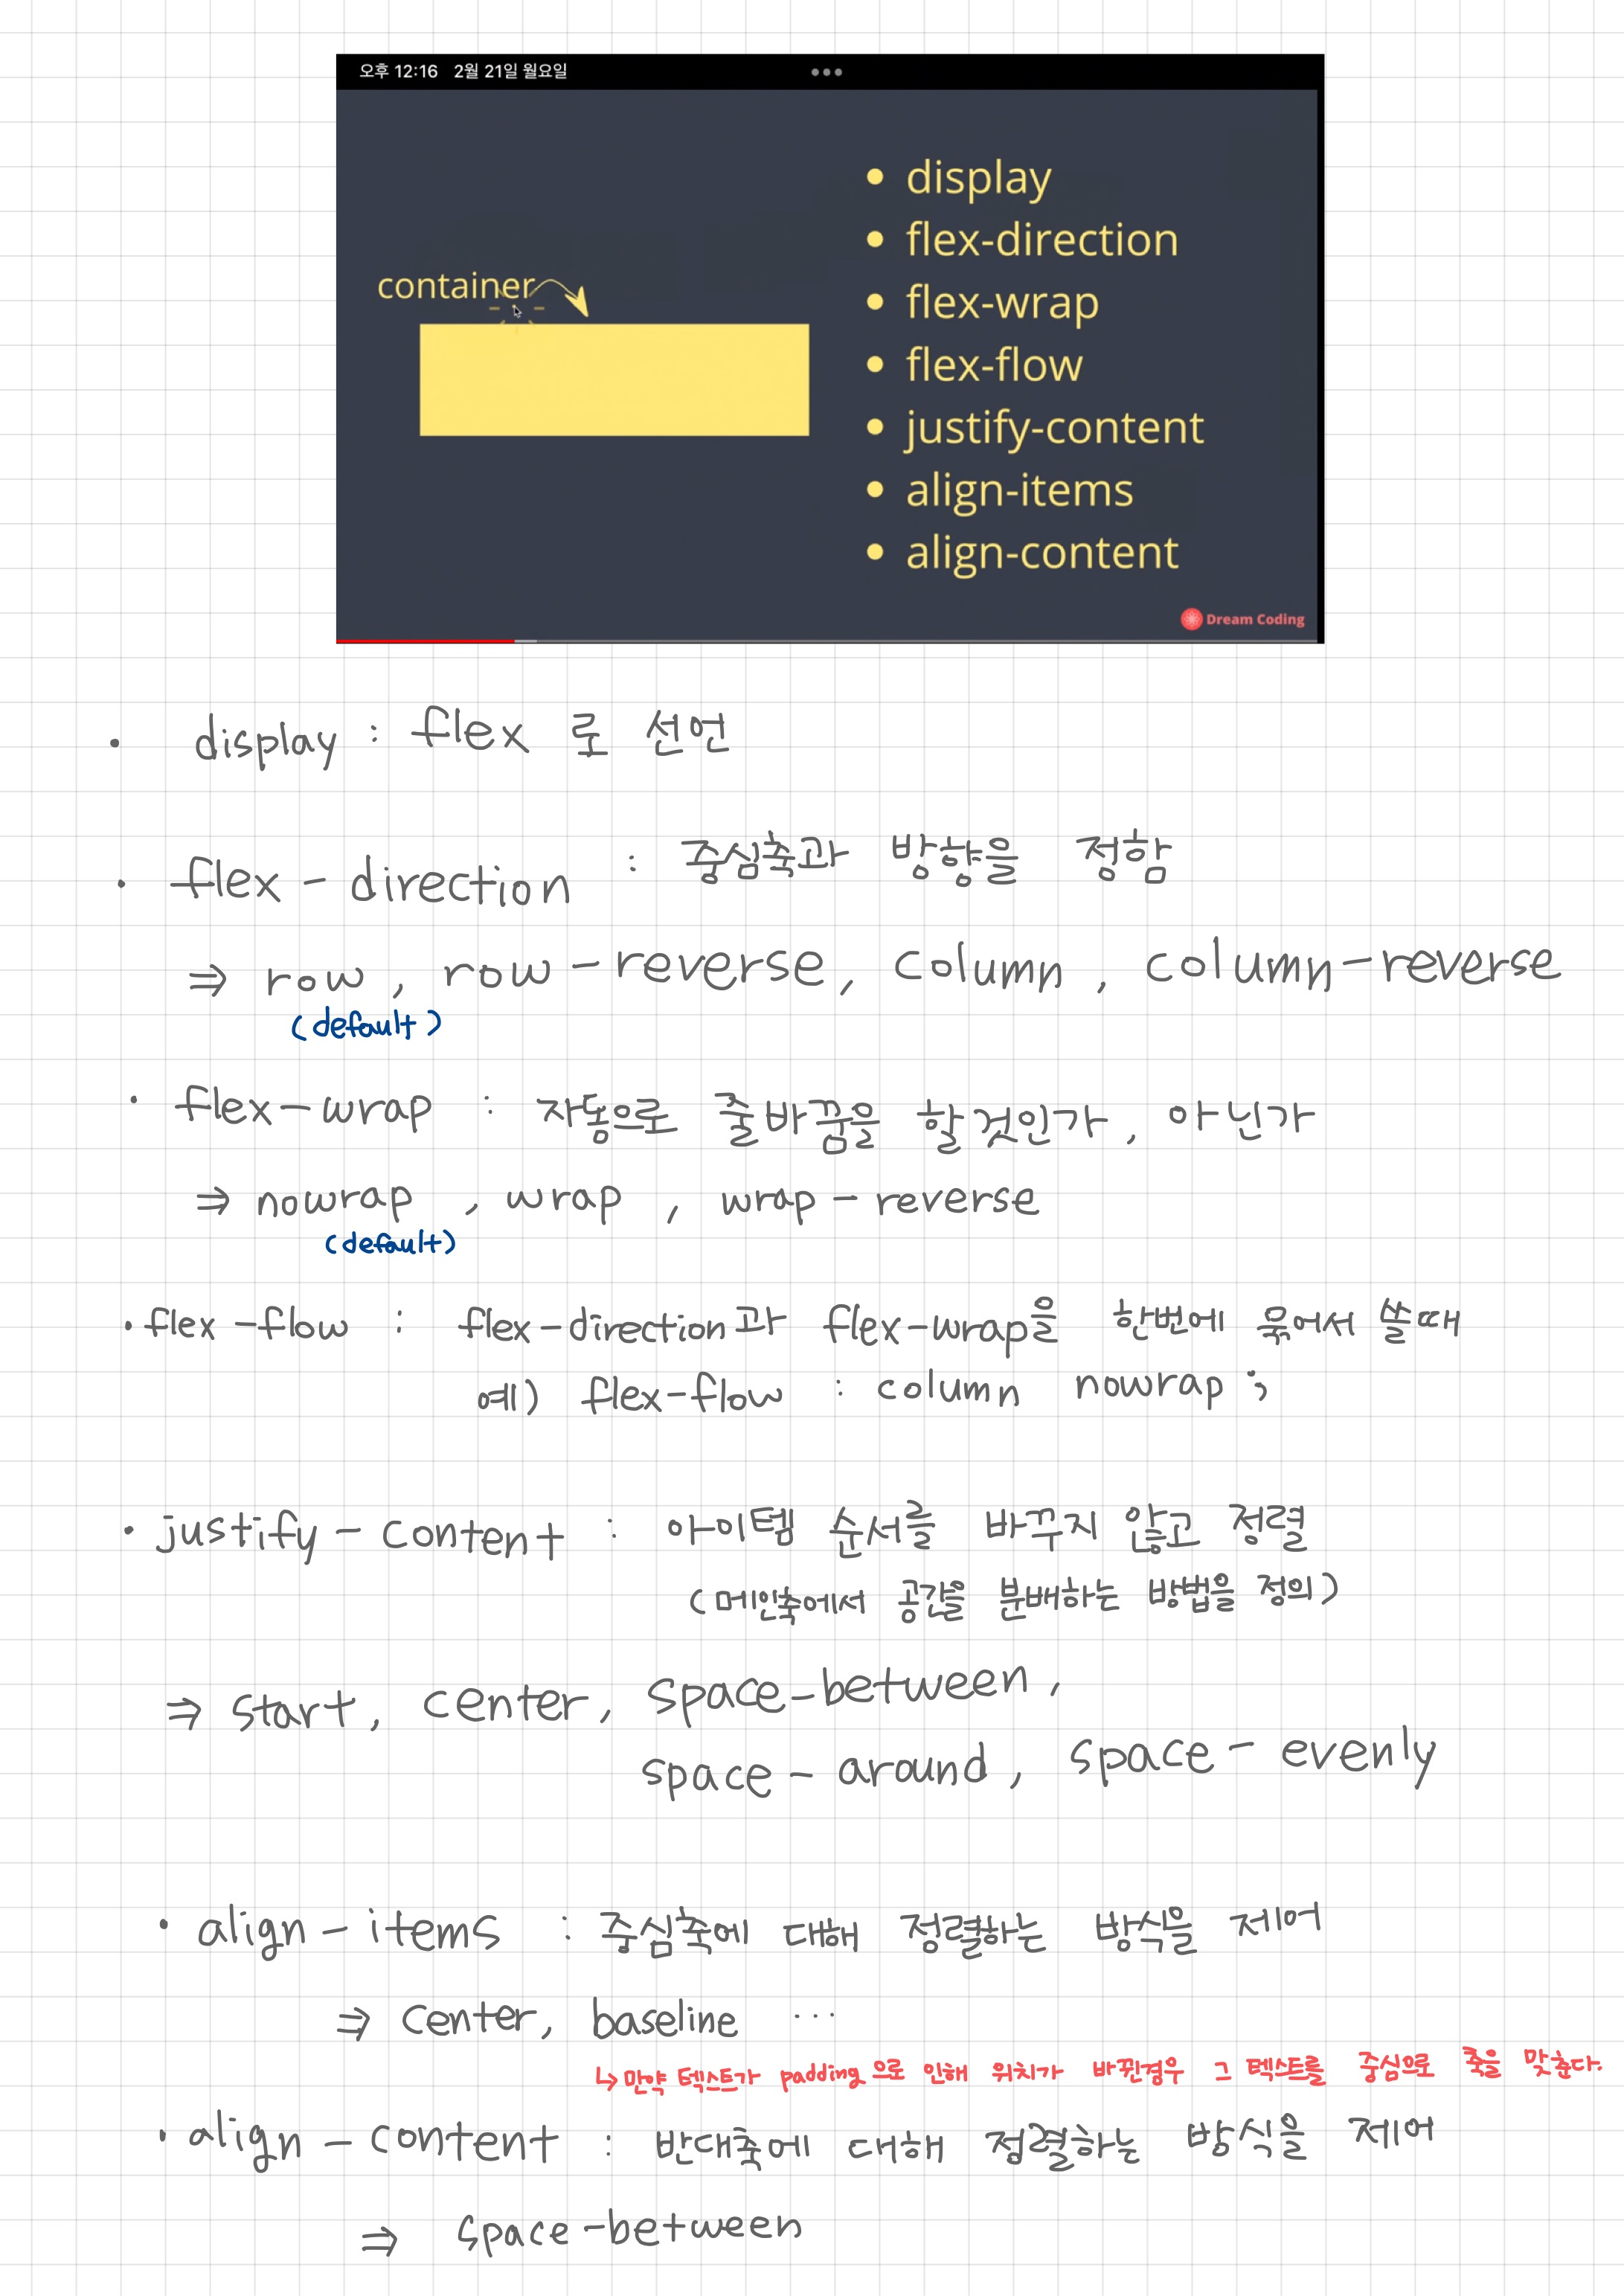 오후 12:16 2월 21일 월요일
container
• display
• flex-direction
• flex-wrap
• flex-flow
• justify-content
• align-items
• align-content
Dream Coding
· display : flex 로 선언
· flex - direction : 중심축과 방향을 정함
⇒ row, row-reverse, column, column-reverse
(default)
· flex-wrap : 자동으로 줄바꿈을 할것인가, 아닌가
⇒ nowrap, wrap, wrap-reverse
(default)
· flex-flow : flex-direction과 flex-wrap을 한번에 묶어서 쓸때
예) flex-flow : column nowrap ;
· justify - content : 아이템 순서를 바꾸지 않고 정렬
(메인축에서 공간을 분배하는 방법을 정의)
⇒ start, center, space-between,
space - around, space - evenly
· align - items : 중심축에 대해 정렬하는 방식을 제어
⇒ center, baseline ...
↳ 만약 텍스트가 padding으로 인해 위치가 바뀐경우 그 텍스트를 중심으로 축을 맞춘다.
· align - content : 반대축에 대해 정렬하는 방식을 제어
⇒ space-between